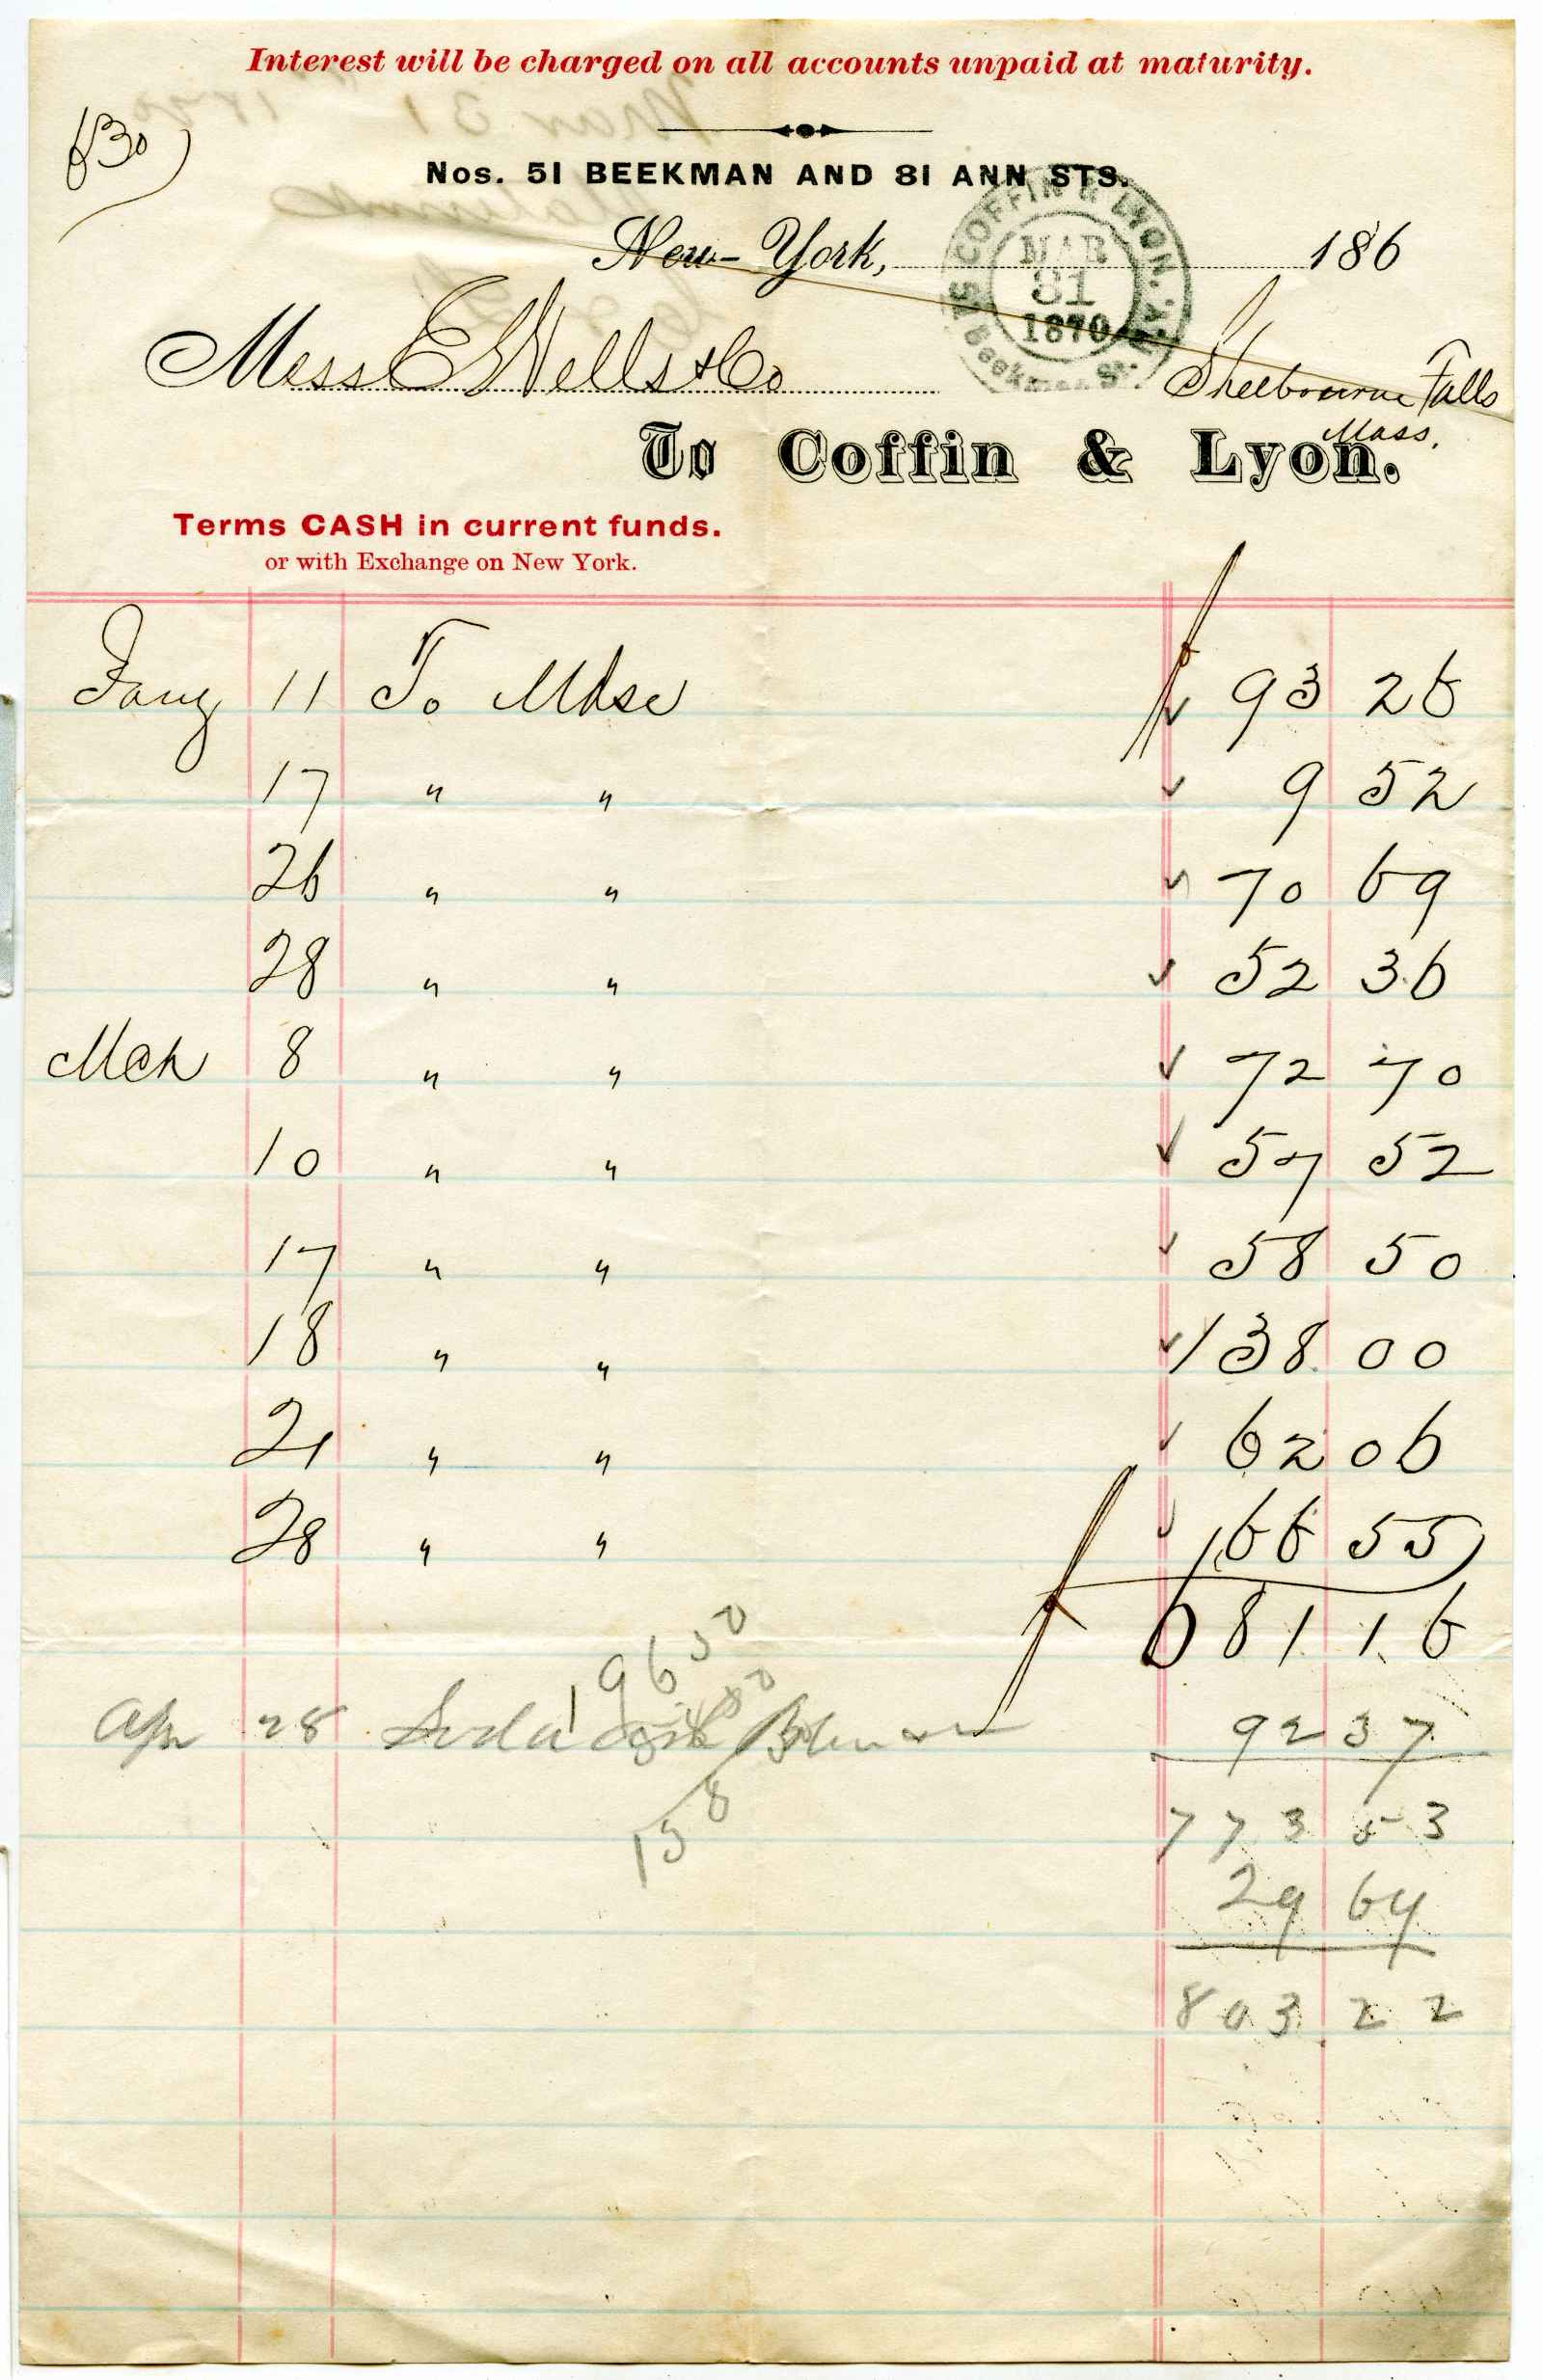 Interest will be charged on all accounts unpaid at maturity.
Nos. 51 BEEKMAN AND 81 ANN STS.
New-York, 186
COFFIN & LYON.
MAR
31
1870
Beekman St.
Mess E G Wells & Co
Shelbourne Falls
Mass.
To Coffin & Lyon.
Terms CASH in current funds.
or with Exchange on New York.
Jany 11 To Mdse 93 26
17 " " 9 52
26 " " 70 69
28 " " 52 36
Mch 8 " " 72 70
10 " " 57 52
17 " " 58 50
18 " " 138 00
21 " " 62 06
28 " " 66 55
681 16
Apr 28 92 37
773 53
29 69
803 22